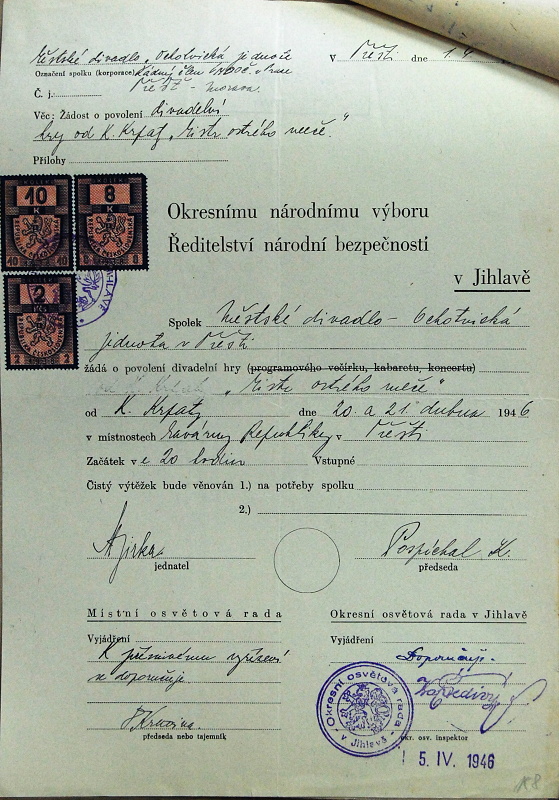 Městské divadlo „Ochotnická jednota
V Třešti dne 1.4.
Označení spolku (korporace) Řádný člen ÚMDOČ v Praze
Č. j. Třešť - Morava.
Věc: Žádost o povolení divadelní
hry od K. Krpaty „Mistr ostrého meče."
Přílohy
10 K
8 K
2 K
REPUBLIKA ČESKOSLOVENSKÁ
Okresnímu národnímu výboru
Ředitelství národní bezpečnosti
v Jihlavě
Spolek Městské divadlo - Ochotnická
jednota v Třešti
žádá o povolení divadelní hry (programového večírku, kabaretu, koncertu)
„Mistr ostrého meče"
od K. Krpaty dne 20. a 21. dubna 1946
v místnostech Kavárny Republiky v Třešti
Začátek v e 20 hodin Vstupné
Čistý výtěžek bude věnován 1.) na potřeby spolku
2.)
Jirka
Pospíchal K.
jednatel
předseda
Místní osvětová rada
Okresní osvětová rada v Jihlavě
Vyjádření
Vyjádření
K příznivému vyřízení
se doporučuje
Doporučuji.
předseda nebo tajemník
Okresní osvětová rada v Jihlavě
okr. osv. inspektor
15. IV. 1946